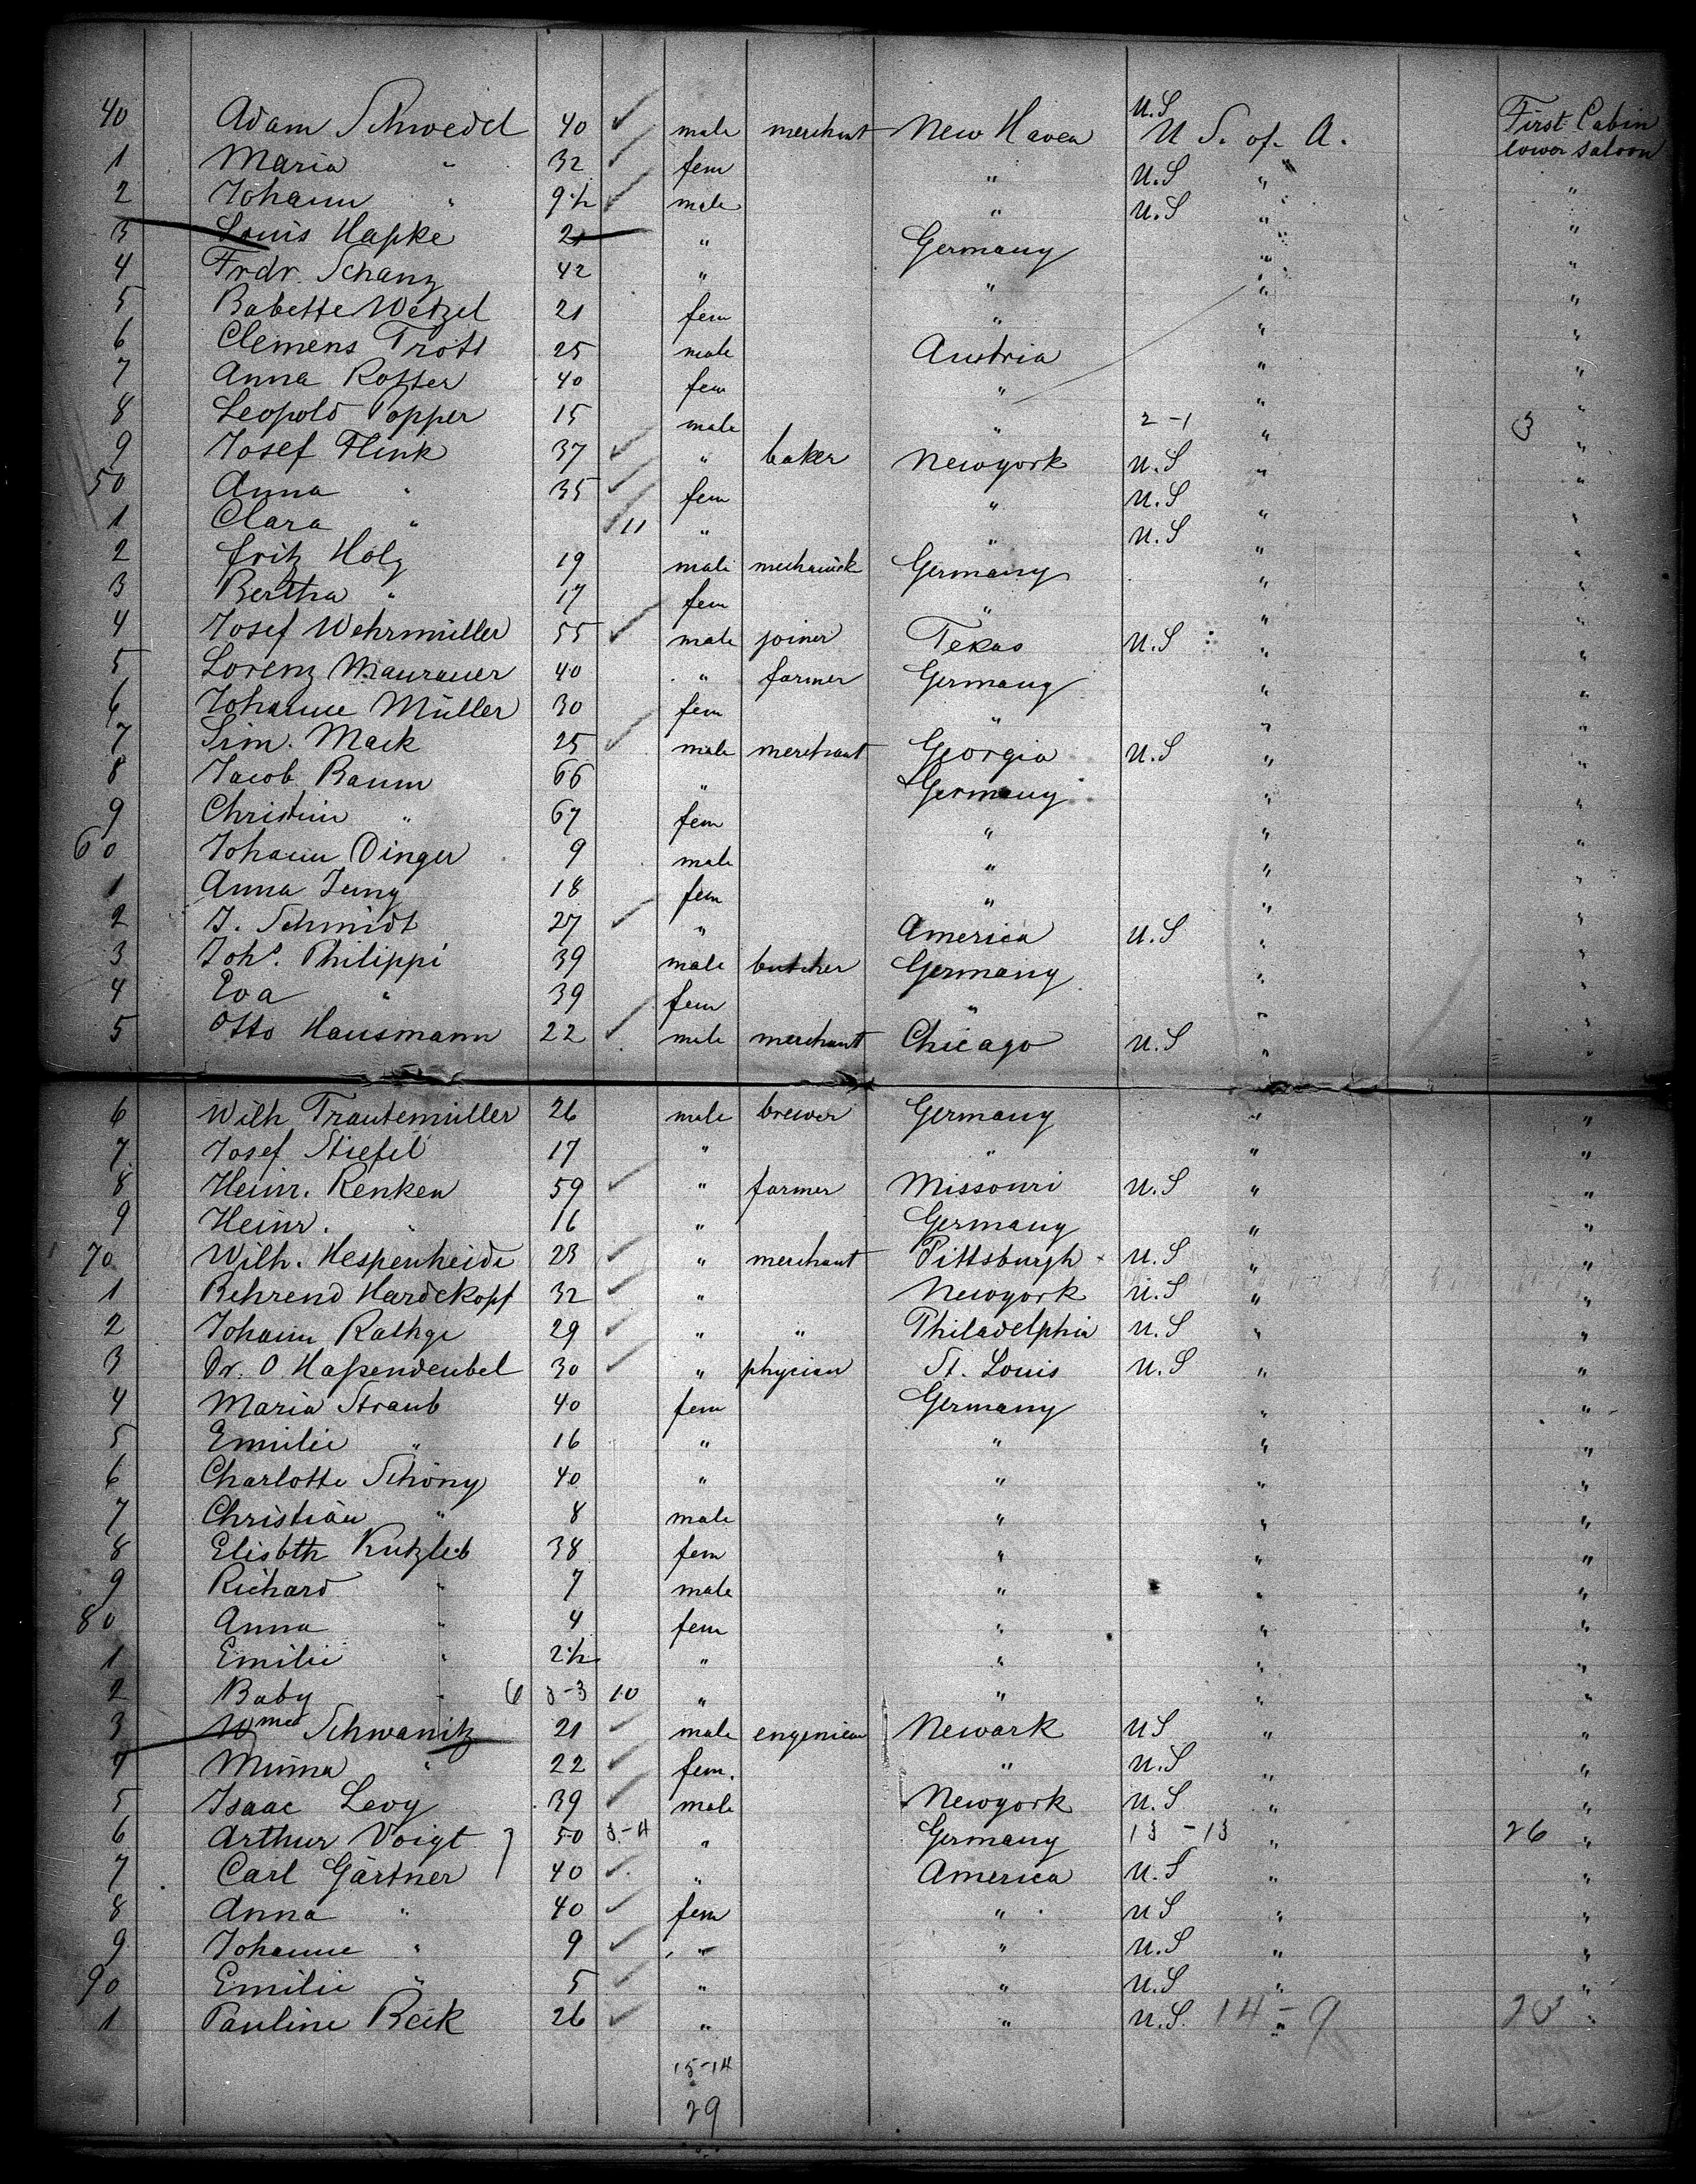 40 Adam Schwedel 40 ✓ male merchant New Haven U.S U S. of. A. First Cabin lower saloon
1 Maria " 32 ✓ fem " U.S " "
2 Johann " 9½ ✓ male " U.S " "
3 Louis Hapke 21 " Germany " "
4 Frdr. Schanz 42 " " " "
5 Babette Wetzel 21 fem " " "
6 Clemens Trost 25 male Austria " "
7 Anna Rotter 40 fem " " "
8 Leopold Popper 15 male " 2-1 " 3 "
9 Josef Flink 37 ✓ " baker Newyork U.S " "
50 Anna " 35 ✓ fem " U.S " "
1 Clara " ✓ 11 " " U.S " "
2 Fritz Holz 19 male mechanick Germany " "
3 Bertha " 17 fem " " "
4 Josef Wehrmüller 55 ✓ male joiner Texas U.S " "
5 Lorenz Maurauer 40 " farmer Germany " "
6 Johanne Müller 30 fem " " "
7 Sim. Mack 25 ✓ male merchant Georgia U.S " "
8 Jacob Baum 66 " Germany " "
9 Christin " 67 fem " " "
60 Johann Dinger 9 male " " "
1 Anna Jung 18 fem " " "
2 J. Schmidt 27 ✓ " America U.S " "
3 Johs. Philippi 39 male butcher Germany " "
4 Eva " 39 fem " " "
5 Otto Hausmann 22 ✓ male merchant Chicago U.S " "
6 Wilh Trautemüller 26 male brewer Germany " "
7 Josef Stiefel 17 " " " "
8 Heinr. Renken 59 ✓ " farmer Missouri U.S " "
9 Heinr. " 16 " Germany " "
70 Wilh. Hespenheide 23 ✓ " merchant Pittsburgh U.S " "
1 Behrend Hardekopf 32 ✓ " Newyork U.S " "
2 Johann Rathge 29 ✓ " " Philadelphia U.S " "
3 Dr. O. Haßendeubel 30 ✓ " phycian St. Louis U.S " "
4 Maria Straub 40 fem Germany " "
5 Emilie " 16 " " " "
6 Charlotte Schöny 40 " " " "
7 Christian " 8 male " " "
8 Elisbth Kutzleb 38 fem " " "
9 Richard " 7 male " " "
80 Anna " 4 fem " " "
1 Emilie " 2½ " " " "
2 Baby " 6 3-3 10 " " " "
3 Wm Schwanitz 21 ✓ male engenieur Newark US " "
4 Minna " 22 ✓ fem. " U.S " "
5 Isaac Levy 39 ✓ male Newyork U.S " "
6 Arthur Voigt 50 3-4 " Germany 13-13 " 26 "
7 Carl Gärtner 40 ✓ " America U.S " "
8 Anna " 40 ✓ fem " U S " "
9 Johanne " 9 ✓ " " U.S " "
90 Emilie " 5 ✓ " " U.S " "
1 Pauline Beik 26 ✓ " " U.S. 14-9 " 23 "
15-14
29